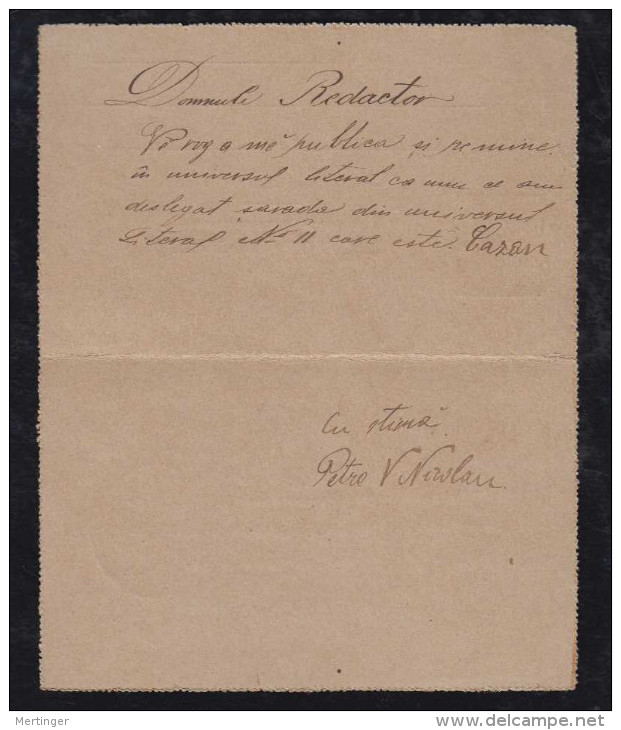 Domnule Redactor
Vă rog a mĕ publica și pe mine
in universul literal ca unu ce am
deslegat sarada din universul
Literal No 11 care este. Cazan
Cu stimă
Petre V Nicolau.
Mertinger
www.delcampe.net